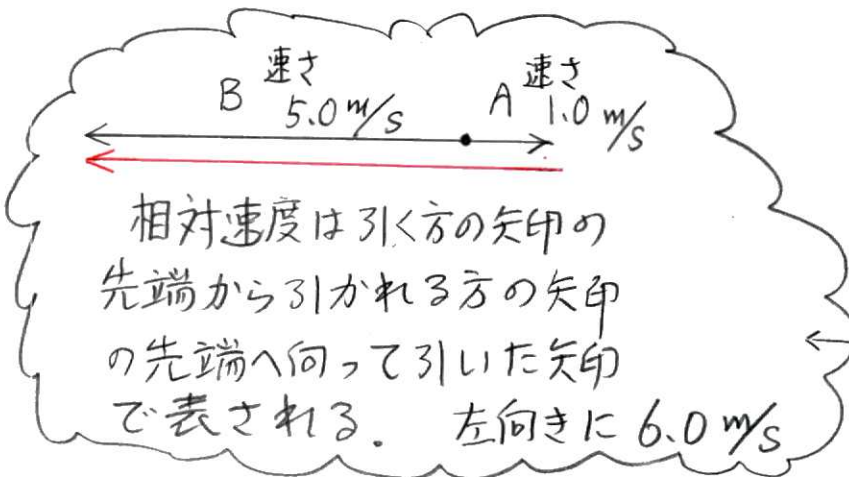 速さ 速さ
B 5.0 m/s A 1.0 m/s
相対速度は引く方の矢印の
先端から引かれる方の矢印
の先端へ向って引いた矢印
で表される. 左向きに 6.0 m/s